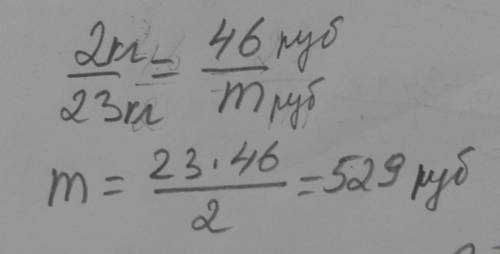 2м/23м = 46 руб/m руб
m = 23 · 46/2 = 529 руб